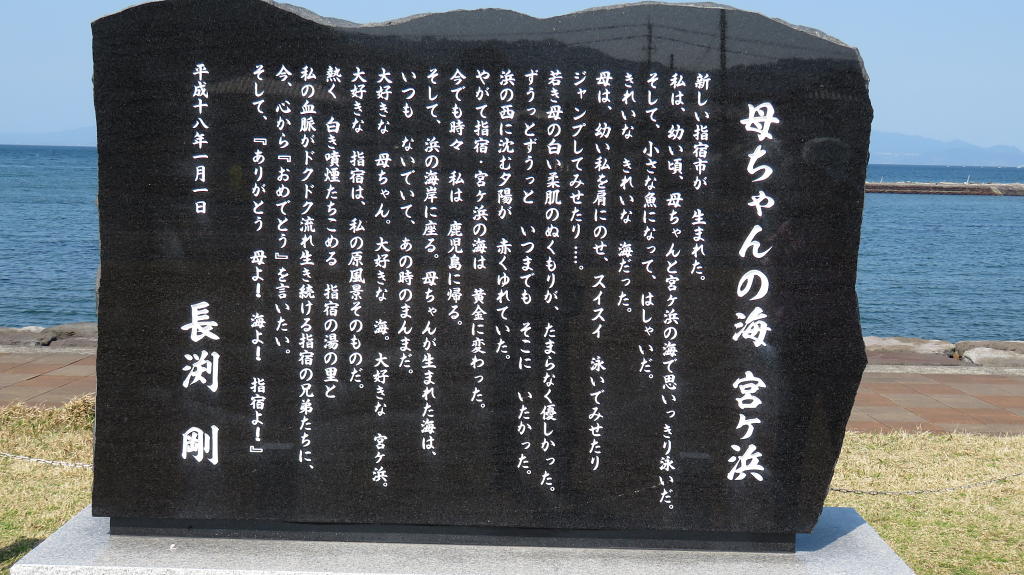 母ちゃんの海 宮ケ浜
新しい指宿市が 生まれた。
私は、幼い頃、母ちゃんと宮ケ浜の海で思いっきり泳いだ。
そして、小さな魚になって、はしゃいだ。
きれいな きれいな 海だった。
母は、幼い私を肩にのせ、スイスイ 泳いでみせたり
ジャンプしてみせたり……。
若き母の白い柔肌のぬくもりが、たまらなく優しかった。
ずうっとずうっと いつまでも そこに いたかった。
浜の西に沈む夕陽が 赤くゆれていた。
やがて指宿・宮ケ浜の海は 黄金に変わった。
今でも時々 私は 鹿児島に帰る。
そして、浜の海岸に座る。母ちゃんが生まれた海は、
いつも ないでいて、あの時のまんまだ。
大好きな 母ちゃん。大好きな 海。大好きな 宮ケ浜。
大好きな 指宿は、私の原風景そのものだ。
熱く 白き噴煙たちこめる 指宿の湯の里と
私の血脈がドクドク流れ生き続ける指宿の兄弟たちに、
今、心から『おめでとう』を言いたい。
そして、『ありがとう 母よ! 海よ! 指宿よ!』
平成十八年一月一日
長渕 剛